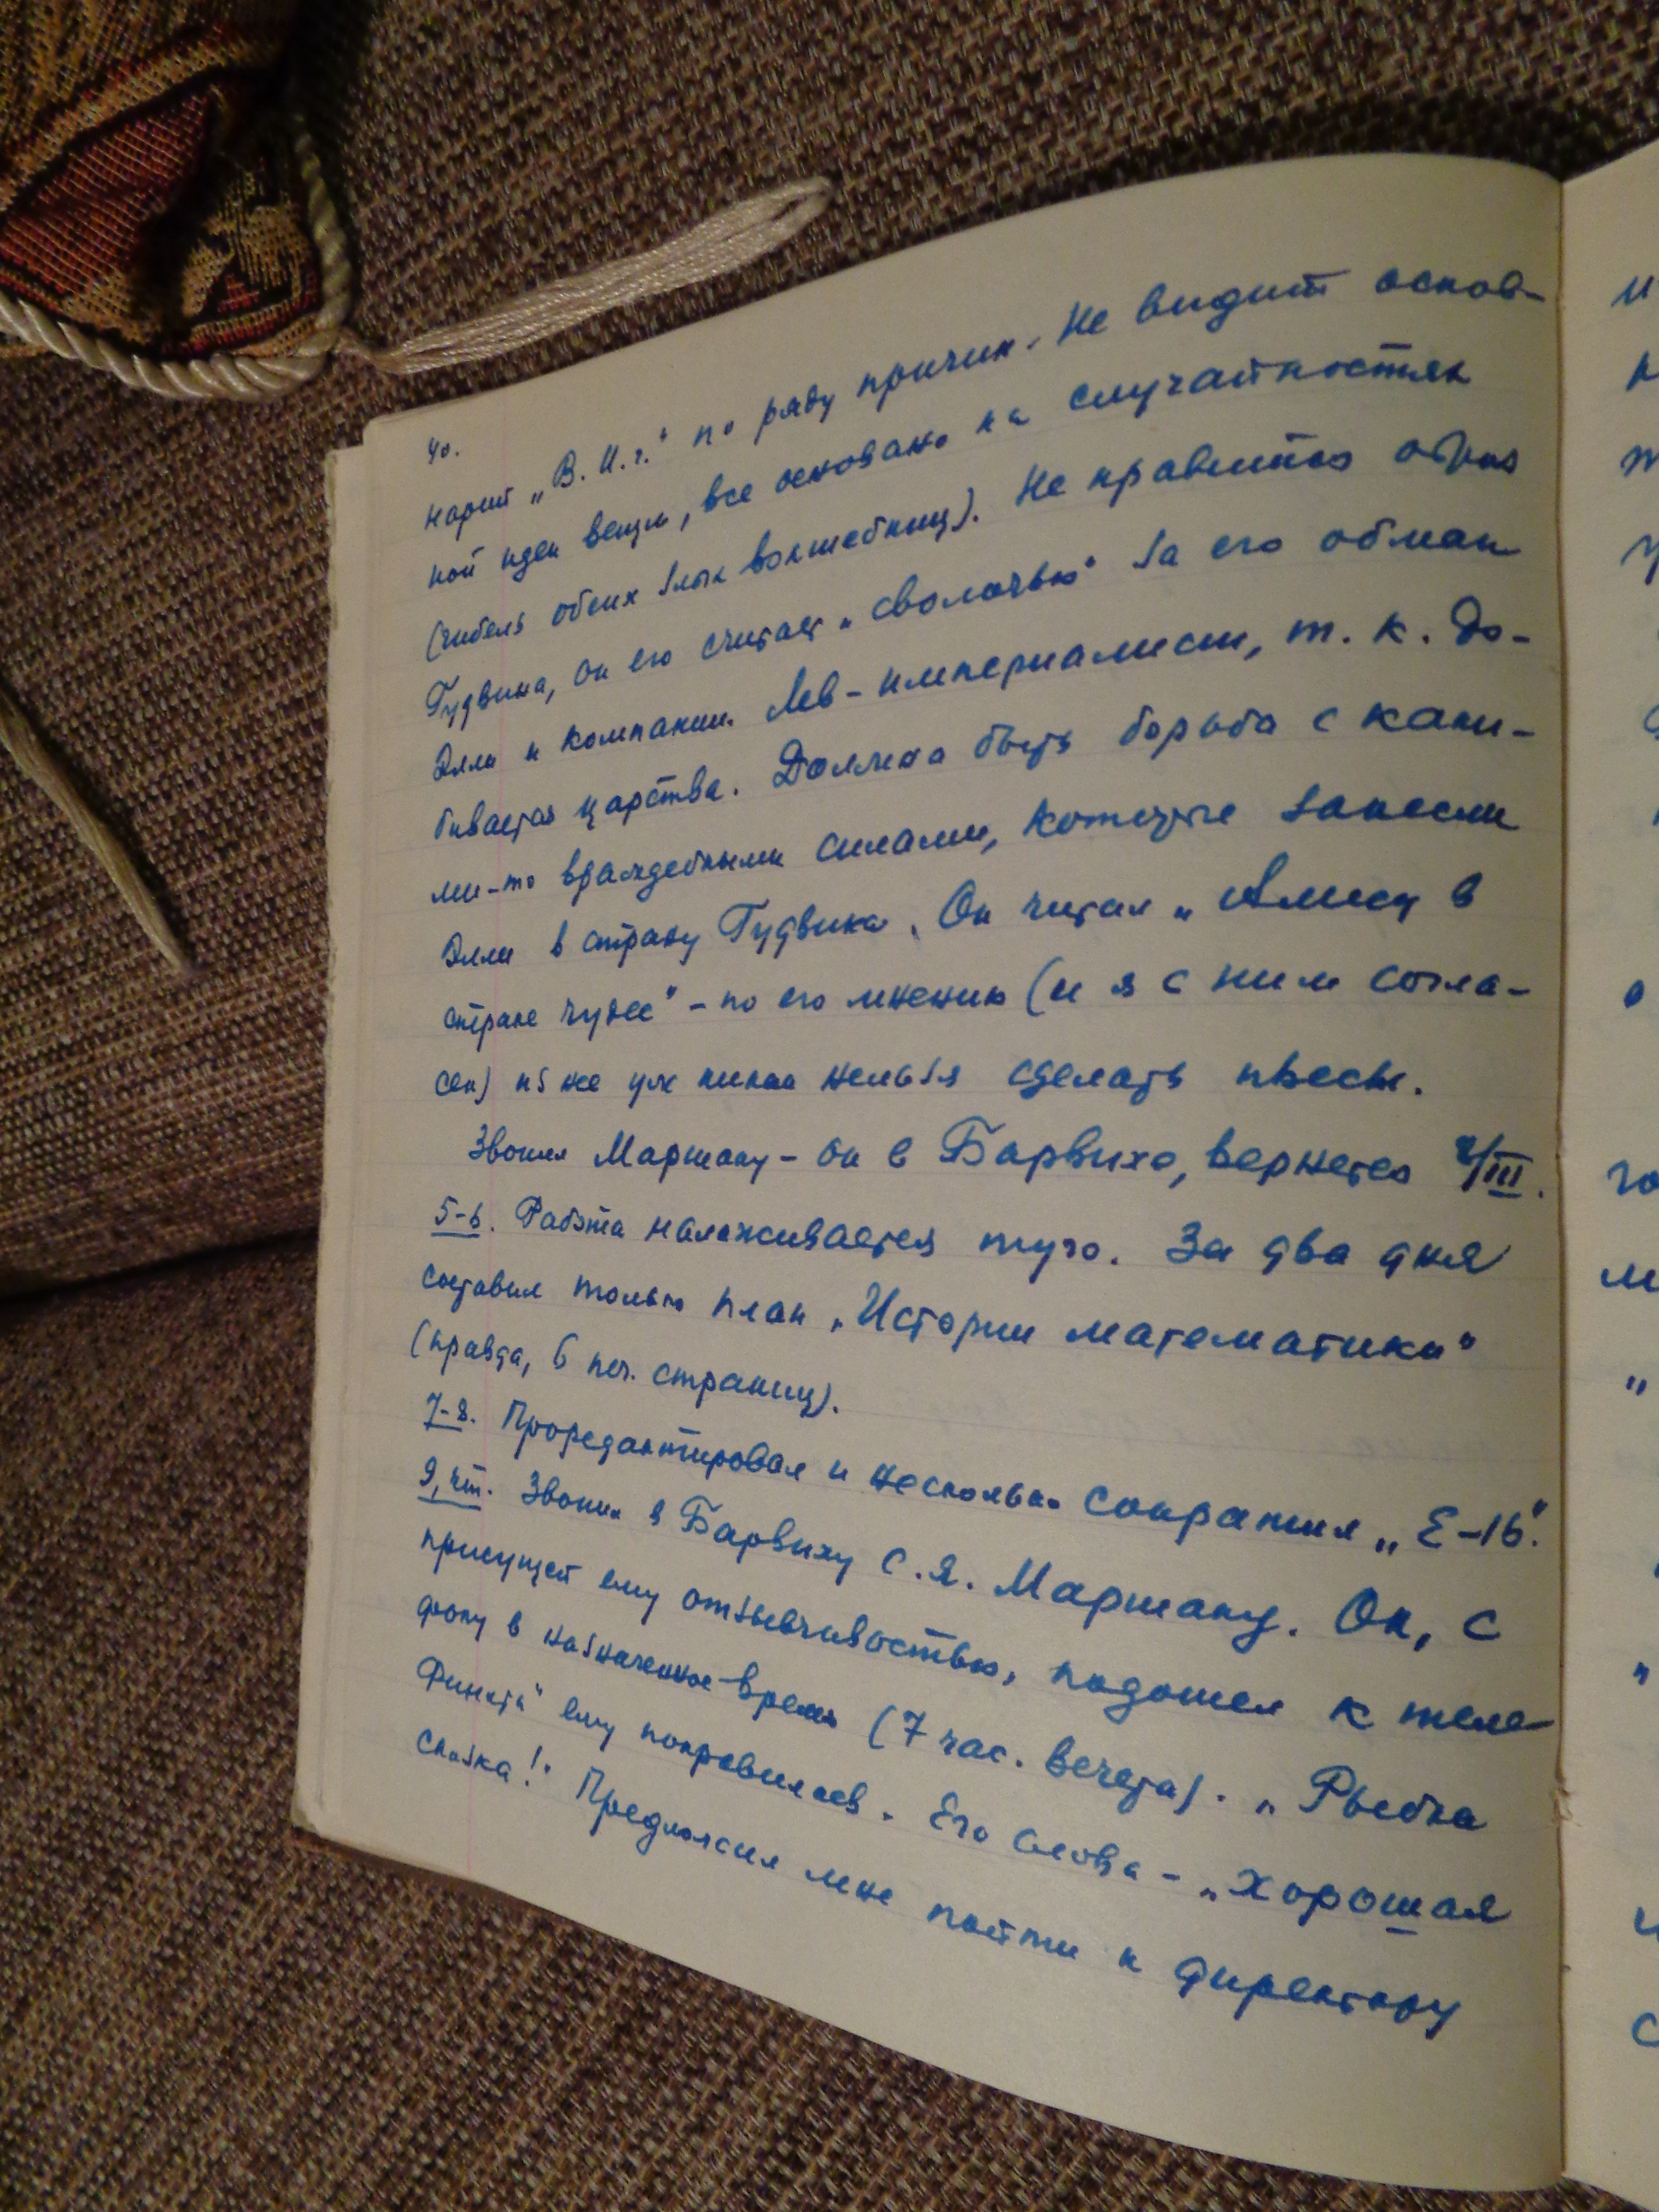 40.
нарит „В. И. г." по ряду причин. Не видит основ-
ной идеи вещи, все основано на случайностях
(гибель обеих злых волшебниц). Не нравится образ
Гудвина, он его считает „сволочью" за его обман
Элли и компании. Лев-империалист, т. к. до-
бивается царства. Должна быть борьба с каки-
ми-то враждебными силами, которые занесли
Элли в страну Гудвина. Он читал „Алису в
стране чудес" – по его мнению (и я с ним согла-
сен) из нее уж никак нельзя сделать пьесы.
Звонил Маршаку – он в Барвихе, вернется /III.
5-6. Работа налаживается туго. За два дня
составил только план „Истории математики"
(правда, 6 печ. страниц).
7-8. Проредактировал и несколько сократил „Е-16".
9, чт. Звонил в Барвиху С. Я. Маршаку. Он, с
присущей ему отзывчивостью, подошел к теле-
фону в назначенное время (7 час. вечера). „Рыбка
Финита" ему понравилась. Его слова – „Хорошая
сказка!" Предложил мне пойти к директору